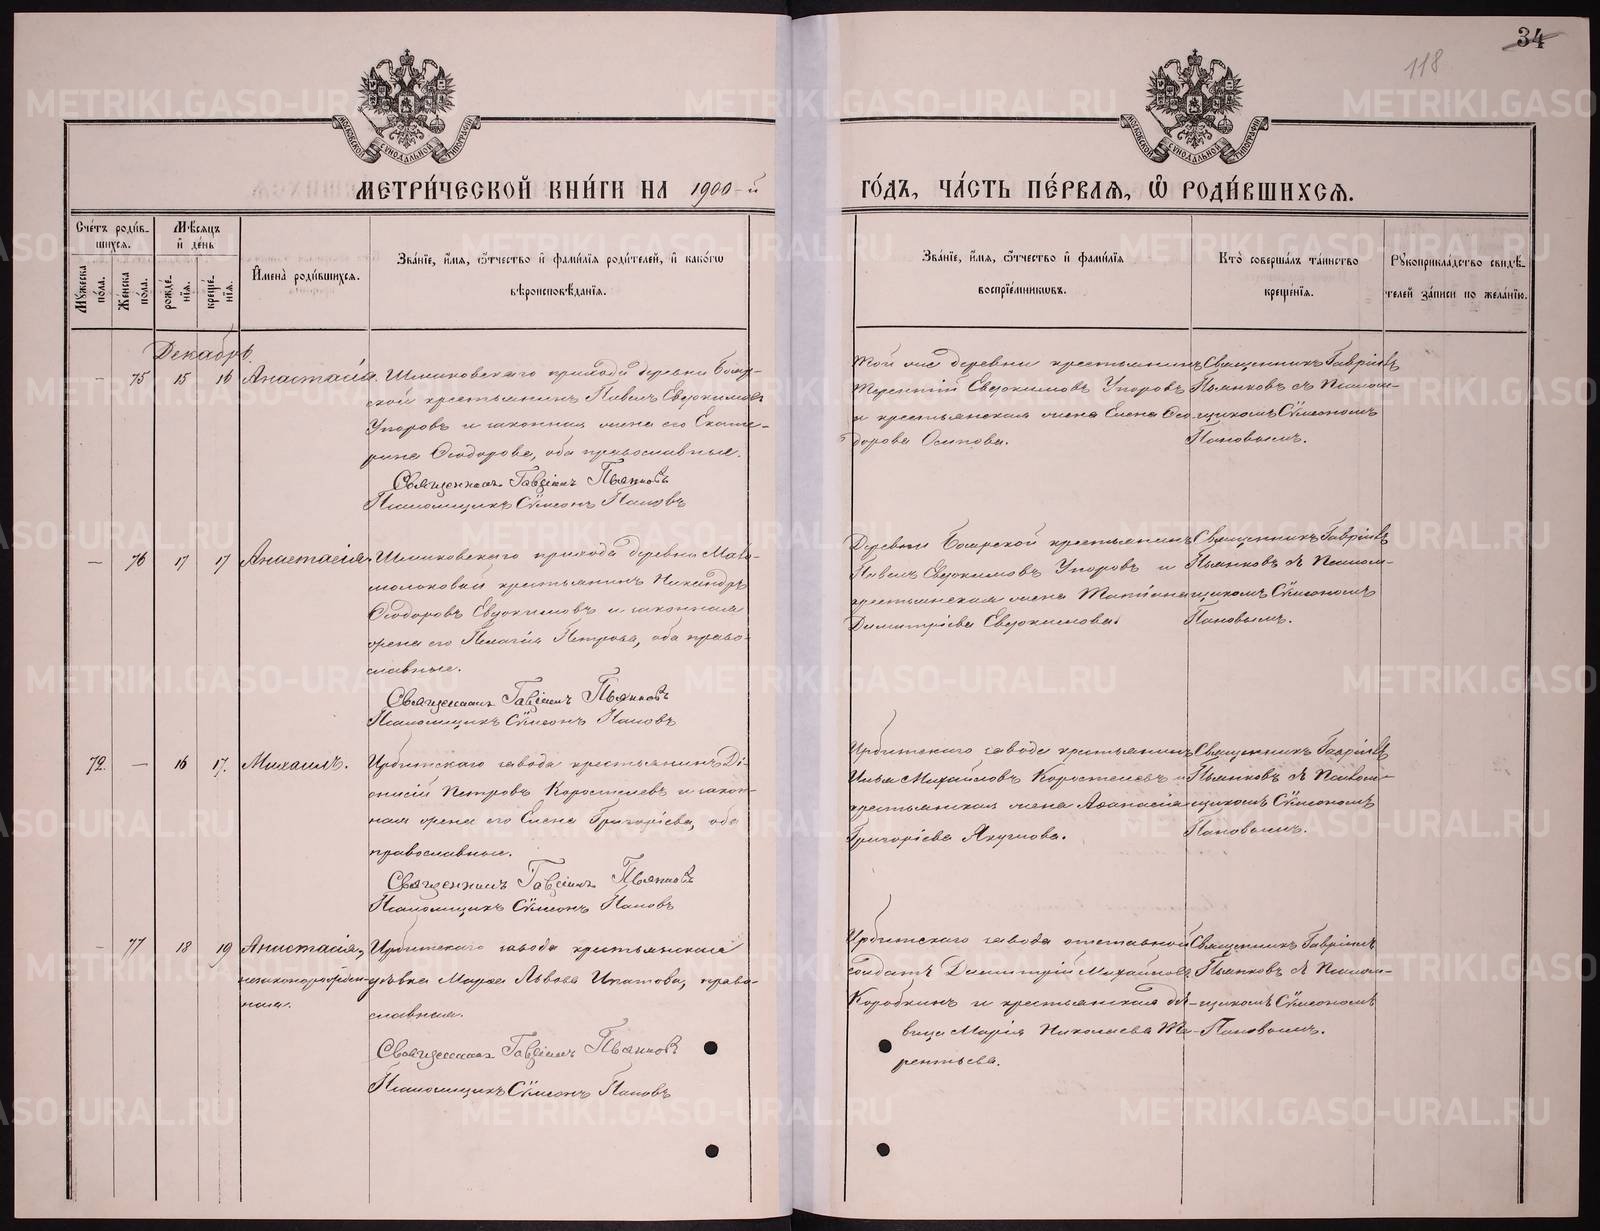 34
118
МОСКОВСКОЙ СѴНОДАЛЬНОЙ ТИПОГРАФІИ
МОСКОВСКОЙ СѴНОДАЛЬНОЙ ТИПОГРАФІИ
МЕТРИ́ЧЕСКОЙ КНИ́ГИ НА 1900-й
ГО́ДЪ, ЧА́СТЬ ПЕ́РВАѦ, Ѽ РОДИ́ВШИХСѦ.
Сче́тъ роди́в-
шихсѧ.
Мѣ́сѧцъ
и҆ де́нь
Мꙋ́жеска
по́ла.
Же́нска
по́ла.
рожде́-
нїѧ.
креще́-
нїѧ.
И҆мена̀ роди́вшихсѧ.
Зва́нїе, и҆́мѧ, ѻ҆́тчество и҆ фамѝлїѧ роди́телей, и҆ како́гѡ
вѣроисповѣ́данїѧ.
Зва́нїе, и҆́мѧ, ѻ҆́тчество и҆ фами́лїѧ
воспрїе́мникѡвъ.
Кто̀ соверша́лъ та́инство
креще́нїѧ.
Рꙋкоприкла́дство свидѣ́-
телей за́писи по жела́нїю.
Декабрь.
– 75 15 16 Анастасія. Шмаковскаго прихода деревни Бояр-
ской крестьянинъ Павелъ Евдокимовъ
Упоровъ и законная жена его Екате-
рина Ѳеодорова, оба православные.
Священникъ Гавріилъ Пьянковъ
Псаломщикъ Сѵмеонъ Пановъ
Той же деревни крестьянинъ
Терентій Евдокимовъ Упоровъ
и крестьянская жена Елена Ѳео-
дорова Осипова.
Священникъ Гавріилъ
Пьянковъ съ Псалом-
щикомъ Сѵмеономъ
Пановымъ.
– 76 17 17 Анастасія. Шмаковскаго прихода деревни
крестьянинъ Никандръ
Ѳеодоровъ Евдокимовъ и законная
жена его Пелагія Петрова, оба право-
славные.
Священникъ Гавріилъ Пьянковъ
Псаломщикъ Сѵмеонъ Пановъ
Деревни Боярской крестьянинъ
Павелъ Евдокимовъ Упоровъ и
крестьянская жена Татіана
Димитріева Евдокимова.
Священникъ Гавріилъ
Пьянковъ съ Псалом-
щикомъ Сѵмеономъ
Пановымъ.
72. – 16 17. Михаилъ. Ирбитскаго завода крестьянинъ Ді-
онисій Петровъ Коростелевъ и закон-
ная жена его Елена Григоріева, оба
православные.
Священникъ Гавріилъ Пьянковъ
Псаломщикъ Сѵмеонъ Пановъ
Ирбитскаго завода крестьянинъ
Илья Михайловъ Коростелевъ и
крестьянская жена Аѳанасія
Григоріева Якунова.
Священникъ Гавріилъ
Пьянковъ съ Псалом-
щикомъ Сѵмеономъ
Пановымъ.
– 77 18 19 Анастасія, Ирбитскаго завода крестьянская
незаконнорожден- дѣвка Марѳа Львова Ипатова, право-
ная. славная.
Священникъ Гавріилъ Пьянковъ
Псаломщикъ Сѵмеонъ Пановъ
Ирбитскаго завода отставной
солдатъ Димитрій Михайловъ
Коробкинъ и крестьянская дѣ-
вица Марія Николаева Те-
рентьева.
Священникъ Гавріилъ
Пьянковъ съ Псалом-
щикомъ Сѵмеономъ
Пановымъ.
METRIKI.GASO-URAL.RU